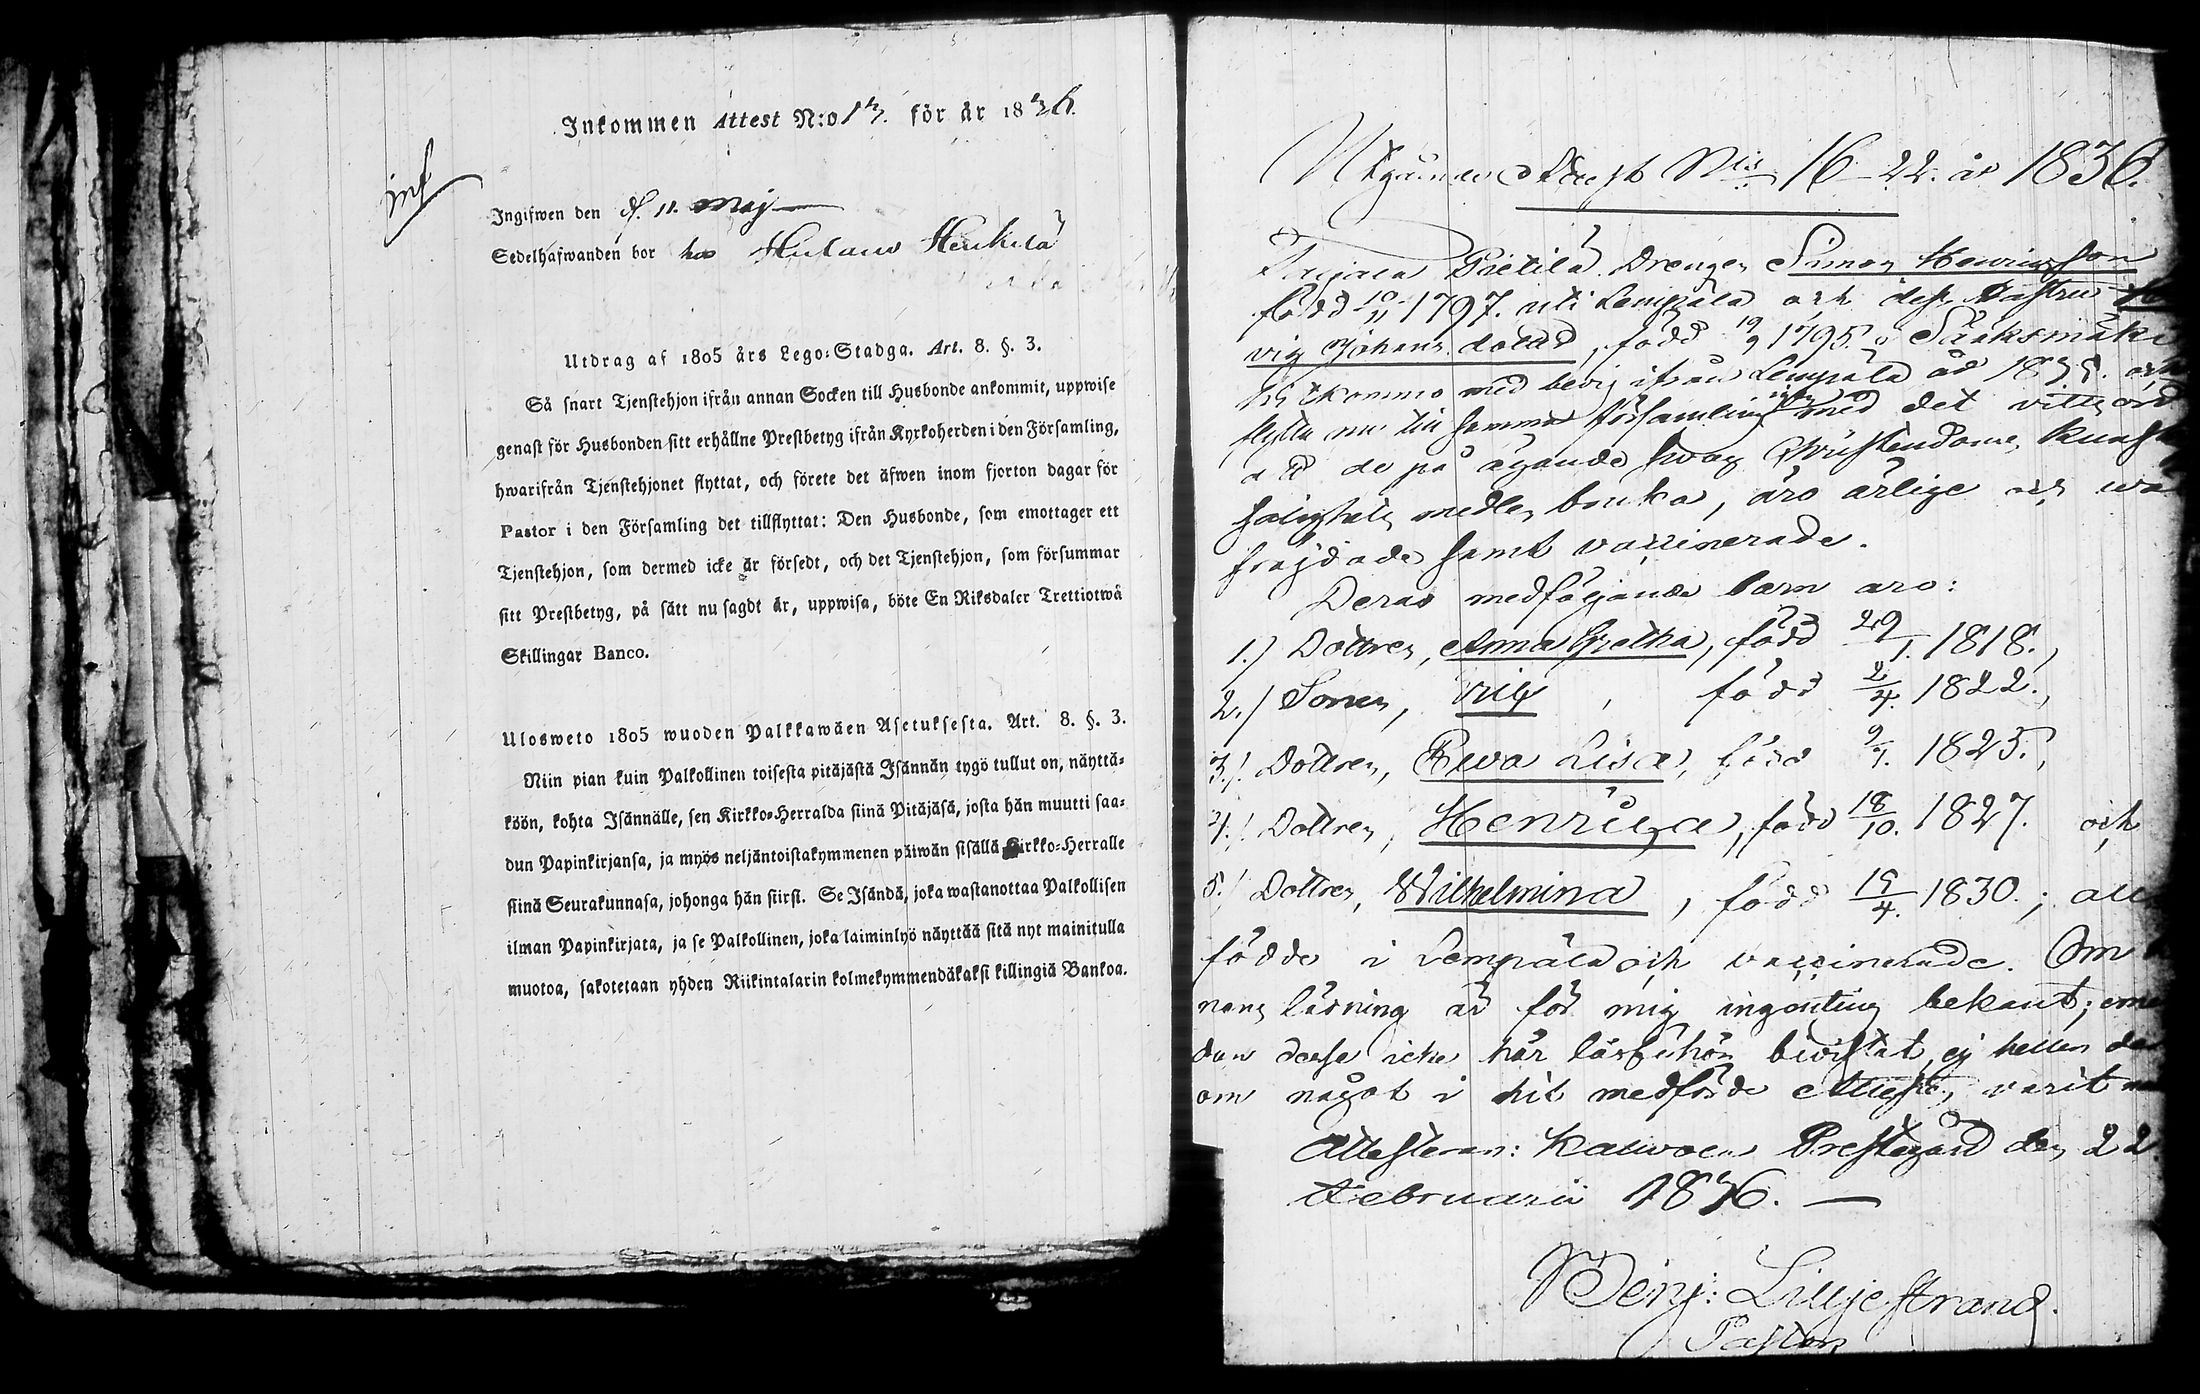 inf
Inkommen Attest N:o 13. för år 1836.
Ingifwen den d. 11. Maj
Sedelhafwanden bor hos Heikkilä
Utdrag af 1805 års Lego-Stadga. Art. 8. §. 3.
Så snart Tjenstehjon ifrån annan Socken till Husbonde ankommit, uppwise
genast för Husbonden sitt erhållne Prestbetyg ifrån Kyrkoherden i den Församling,
hwarifrån Tjenstehjonet flyttat, och förete det äfwen inom fjorton dagar för
Pastor i den Församling det tillflyttat: Den Husbonde, som emottager ett
Tjenstehjon, som dermed icke är försedt, och det Tjenstehjon, som försummar
sitt Prestbetyg, på sätt nu sagdt är, uppwisa, böte En Riksdaler Trettiotwå
Skillingar Banco.
Ulosweto 1805 wuoden Palkkawäen Asetuksesta. Art. 8. §. 3.
Niin pian kuin Palkollinen toisesta pitäjästä Isännän tygö tullut on, näyttä-
köön, kohta Isännälle, sen Kirkko-Herralda siinä Pitäjäsä, josta hän muutti saa-
dun Papinkirjansa, ja myös neljäntoistakymmenen päiwän sisällä Kirkko-Herralle
siinä Seurakunnasa, johonga hän siirsi. Se Isändä, joka wastanottaa Palkollisen
ilman Papinkirjata, ja se Palkollinen, joka laiminlyö näyttää sitä nyt mainitulla
muotoa, sakotetaan yhden Riikintalarin kolmekymmendäkaksi killingiä Bankoa.
Utgången Attest N:is 16-22. år 1836.
Pietilä Drengen Simon Henricsson
född 10/11 1797. uti Lempälä och dess Hustru
vig Johans dotter, född 19/9 1795. i Sääksmäki
hitkommo med bevis ifrån Lempälä år 1835. och
flytta nu till samma församling med det vittsord
att de på ägande svag Christendoms kunskap
salighets medlen bruka, äro ärlige och
frejdade samt vaccinerade.
Deras medföljande barn äro:
1.) Dottren, Anna Gretha, född 29/1. 1818.,
2.) Sonen, , född 2/4. 1822.,
3.) Dottren, Ewa Lisa, född 9/7. 1825.,
4.) Dottren, Henrica, född 18/10. 1827. och
5.) Dottren, Wilhelmina, född 15/4. 1830.; alla
födde i Lempälä och vaccinerade. Om
läsning är för mig ingenting bekant;
dan desse icke här läsförhör bevistat, ej heller de
om något i hit medförde Attest, varit
Attesteras: Kalwola Prestegård den 22
Februarii 1836.
Benj: Lilljestrand.
Pastor